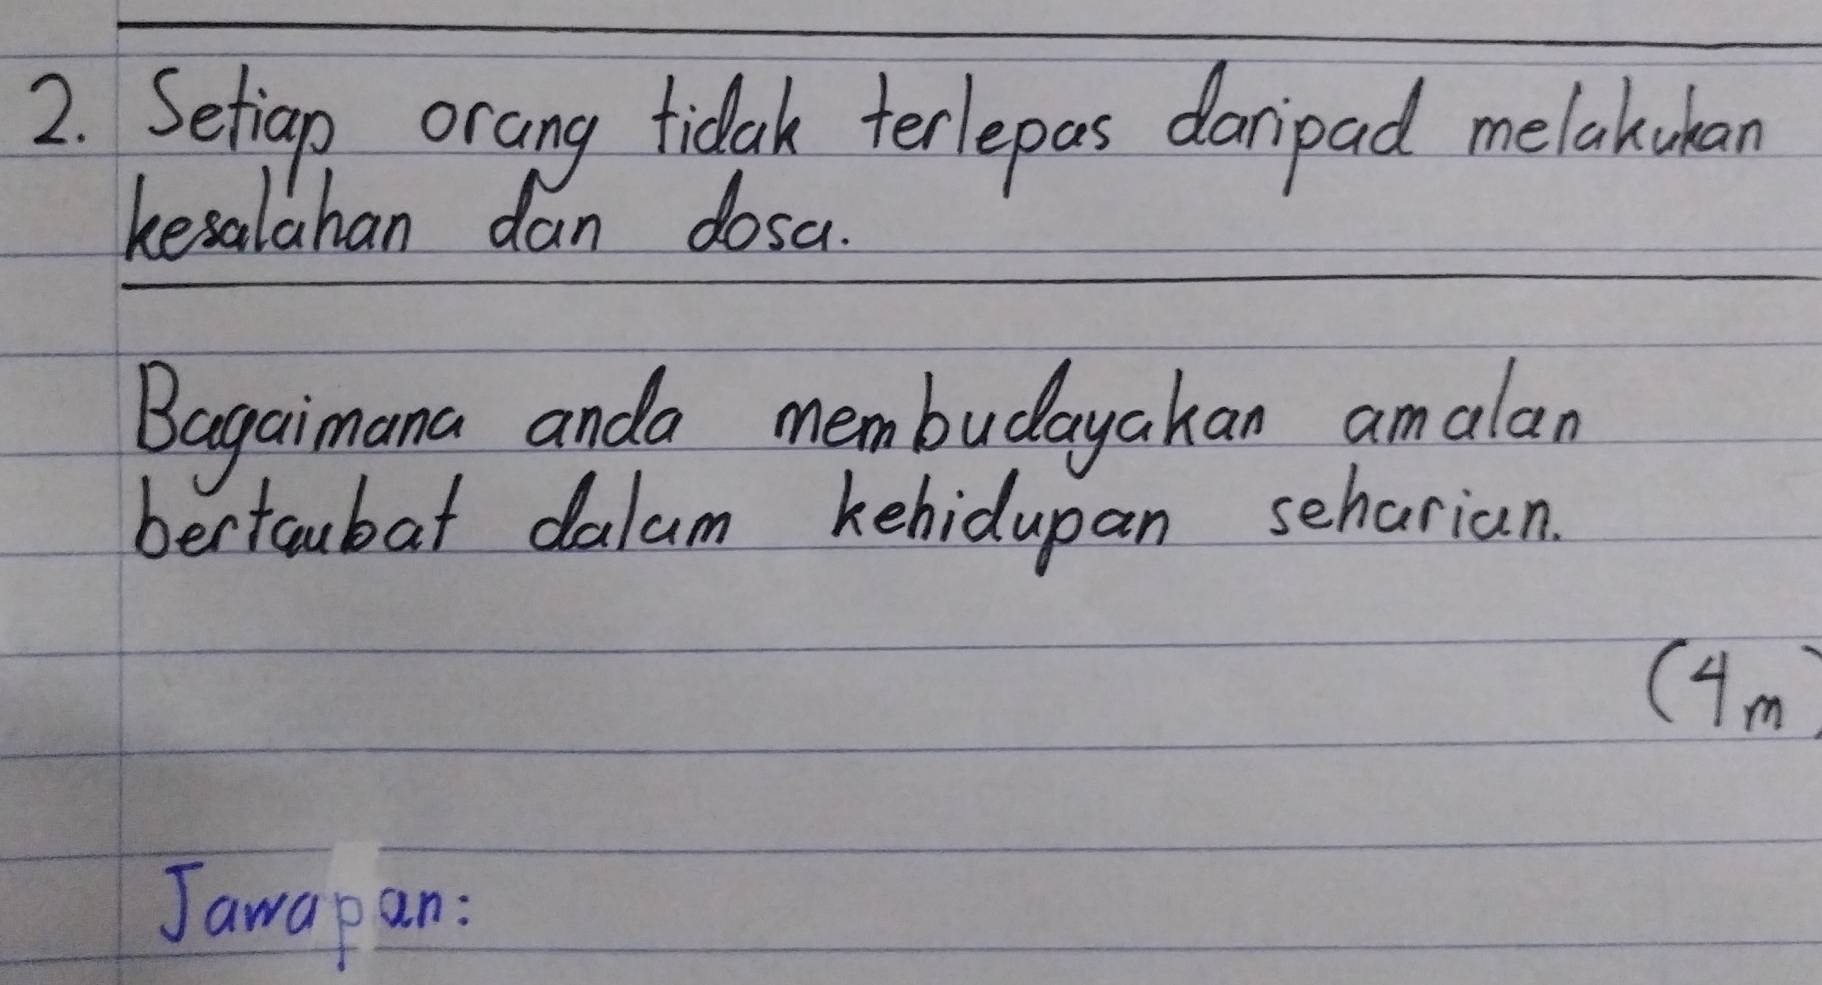 2. Setiap orang tidak terlepas daripad melakukan
kesalahan dan dosa.
Bagaimana anda membudayakan amalan
bertaubat dalam kehidupan seharian.
(4m)
Jawapan: